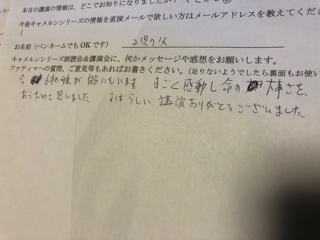 本日の講演の情報は、どこでお知りになりましたか?
今後キャメルンシリーズの情報を直接メールで欲しい方はメールアドレスを教えてくださ
(
お名前(ペンネームでもOKです) 2児の父
キャメルンシリーズ朗読会&講演会に、何かメッセージや感想をお願いします。
ファティマへの質問、ご意見等もあればお書きください。(足りないようでしたら裏面もお使い
今 術後が にもいます すごく感動し命の 大事さを、
あらためて思いました すばらしい講演ありがとうございました。